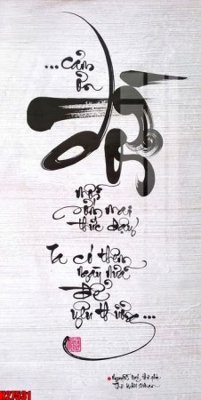 ...Cảm
ơn
Đời
mỗi
sớm mai
thức dậy
Ta có thêm
ngày nữa
để
yêu thương...